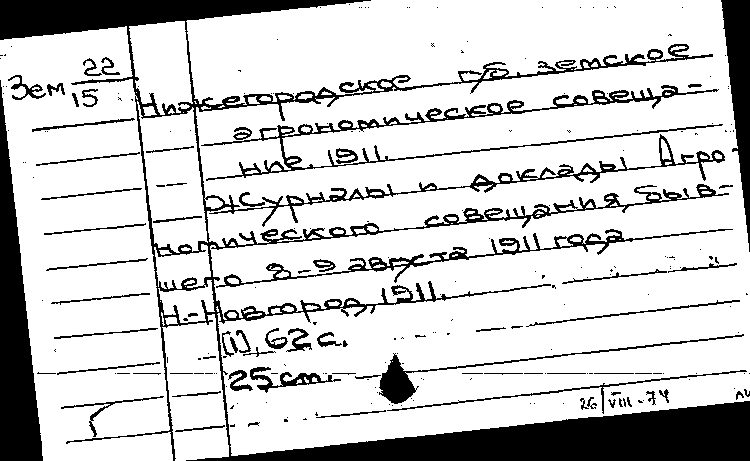 Зем 22/15
Нижегородское губ. земское
агрономическое совеща-
ние. 1911.
Журналы и доклады Агро-
номического совещания, быв-
шего 8-9 августа 1911 года.
Н.-Новгород, 1911.
[1], 62 с.
25 cm.
26/VIII-74